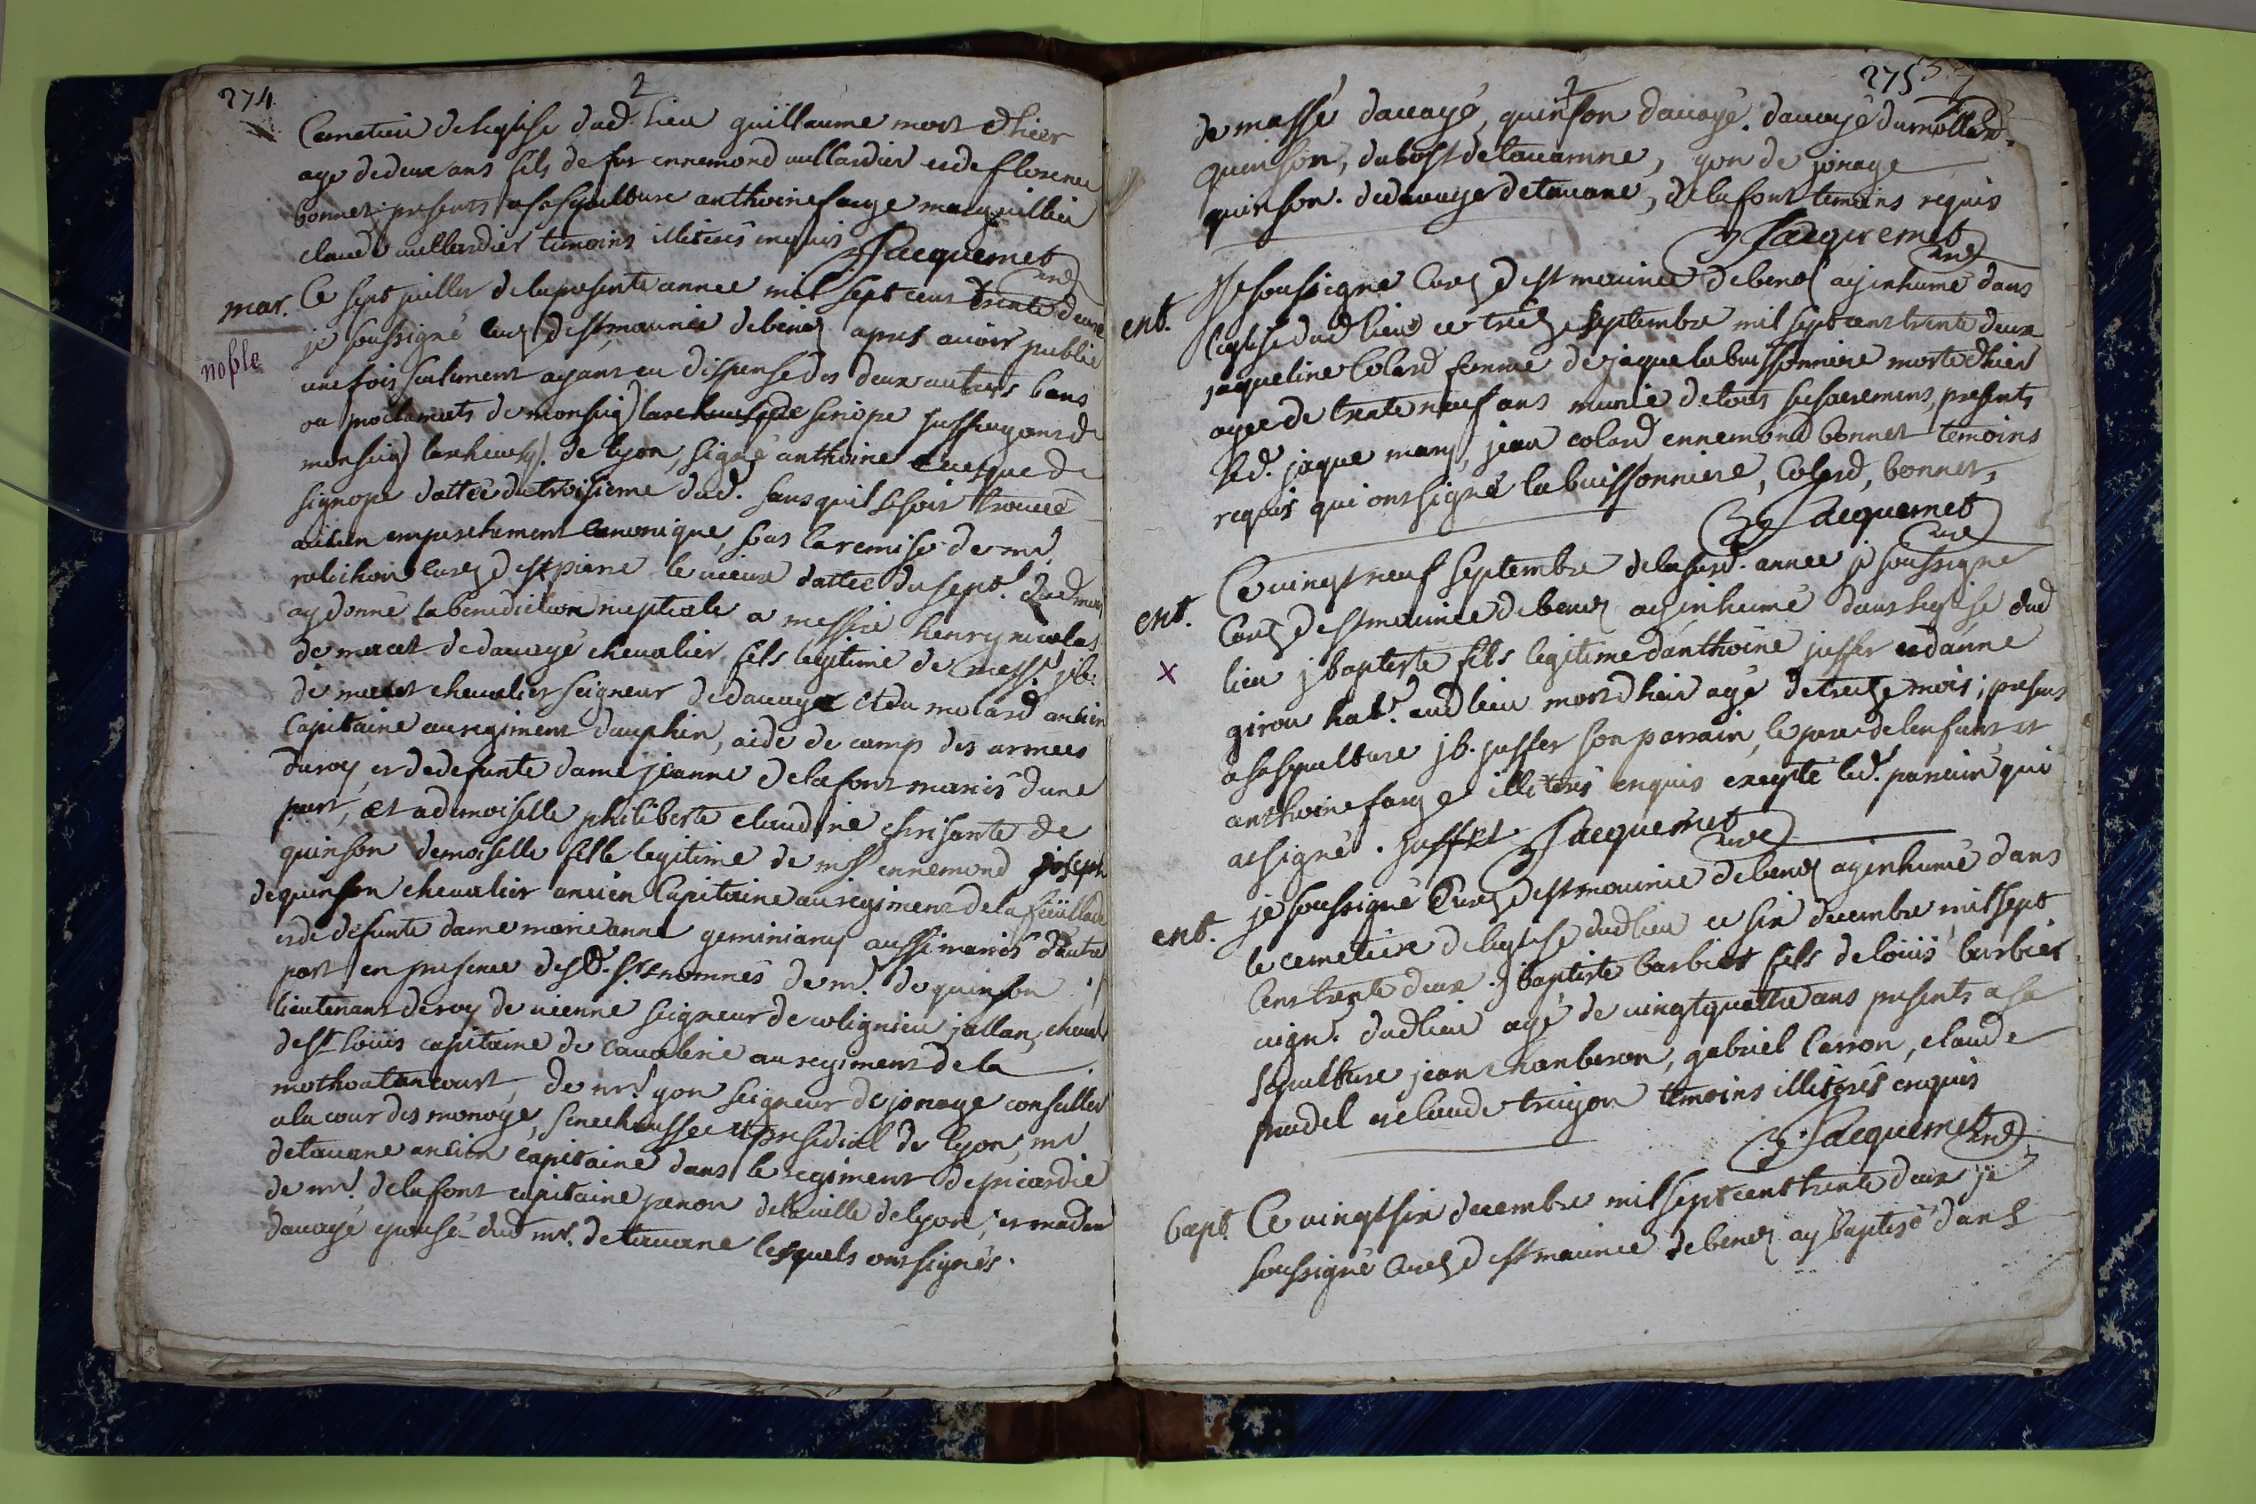 274
2
Cemetiere deleglise dud. lieu guillaume mort dhier
age de deux ans fils de fut ennemond uillardier et de florence
bonnet presents a sa sepulture anthoine farge marguillier
claude uillardier temoins illiterés enquis Jacquemet
curé
mar. Ce sept juillet de la presente annee mil sept cent trente deux
noble
je soussigné curé de st maurice de beinoz apres auoir publié
une fois seulement ayant eu dispense des deux autres bans
ou proclamats de monseig) larcheuesque sinope suffragant de
monseig) larcheuesq. de lyon, signé anthoine euesque de
signope dattée du troisieme dud. sans quil se soit trouué
aucun empeschement canonique, sous la remise de mr
rolichon curé de st pierre le uieux dattee du sept. dud mois
ay donné la benediction nuptiale a messire henry nicolas
de macet de dauayé chevalier fils legitime de mess. jb.
de macet chevalier seigneur de dauaye et du molard ancien
Capitaine au regiment dauphin, aide de camp des armees
du roy et de defunte dame jeanne de lafont mariés dune
part, et a demoiselle philiberte claudine chrisante de
quinson demoiselle fille legitime de mss ennemond joseph
de quinson chevalier ancien Capitaine au regiment de la feüillade
et de defunte dame marie anne geminiany aussi mariés dautre
part en presence desd. srs nommés de mr. de quinson
lieutenant de roy de uienne seigneur de colignieu jallan, cheual.
de st loüis capitaine de caualerie au regiment de la
mothoatancourt, de mr. yon seigneur de jonage conseiller
a la cour des monoye, senechaussee et presidial de lyon, mr
de tauane ancien capitaine dans le regiment de picardie
de mr. de lafont capitaine penon de la uille de lyon, et madem
dauayé epouse dud mr. de tauane lesquels ont signés.
275
2
de massé dauayé, quinson dauayé. dauayé dumollard.
quinson, dubost de tauanne, yon de jonage
quinson. de dauaye de tauane, de lafont temoins requis
Jacquemet
curé
ent. Je soussigné Curé de st maurice de beinoz ay inhumé dans
leglise dud lieu ce treize septembre mil sept cens trente deux
jaqueline Colard femme de jaque labuissonniere morte dhier
agee de trente neuf ans munie de tous ses sacremens, presents
led. jaque mary, jean colard ennemond bonnet temoins
requis qui ont signé labuissonniere, Colard, bonnet,
Jacquemet
curé
ent. Ce uingt neuf septembre de la susd. annee je soussigné
Curé de st maurice de beinoz ay inhumé dans leglise dud
x
lieu jbaptiste fils legitime danthoine juffet et danne
girou hab.t audlieu mort dhier agé de treize mois; presens
a sa sepulture jb. juffet son parrain, le pere de lenfant et
anthoine farge illiterés enquis excepté led. parrain qui
a signé. juffet Jacquemet
curé
ent. je soussigné Curé de st maurice de beinoz ay inhumé dans
le cemetiere de leglise dudlieu ce six decembre mil sept
cens trente deux jbaptiste barbier fils de loüis barbier
uign. dudlieu agé de uingt quattre ans presents a sa
sepulture jean chanberon, gabriel Carron, claude
pradel et claude truyon temoins illiterés enquis
Jacquemet
curé
bapt. Ce uingt six decembre mil sept cent trente deux je
soussigné Curé de st maurice de beinoz ay baptisé dans